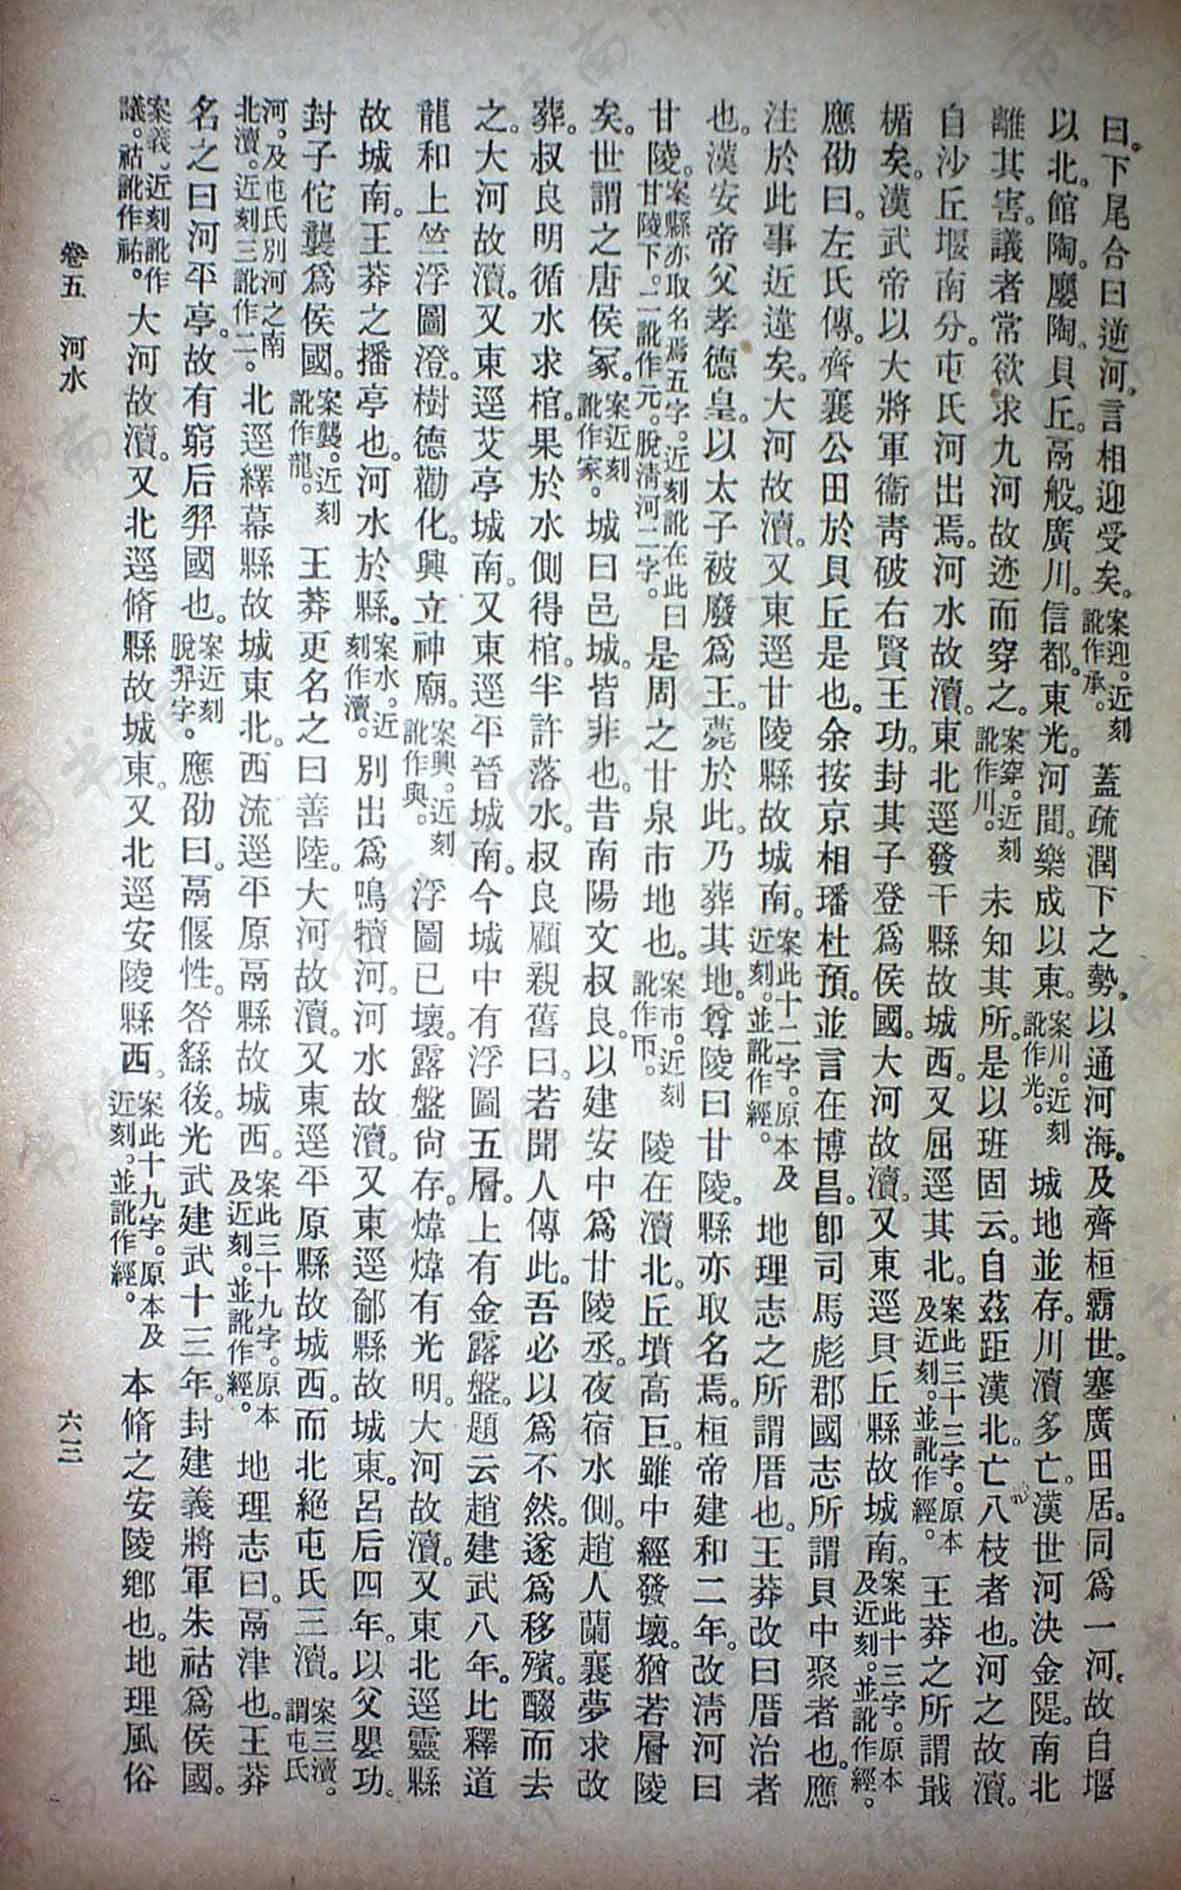 曰。下尾合曰逆河。言相迎受矣。案迎。近刻訛作承。蓋疏潤下之勢。以通河海。及齊桓霸世。塞廣田居。同爲一河。故自堰
以北。館陶。廮陶。貝丘。鬲般。廣川。信都。東光。河間。樂成以東。案川。近刻訛作光。城地並存。川瀆多亡。漢世河決金隄。南北
離其害。議者常欲求九河故迹而穿之。案穿。近刻訛作川。未知其所。是以班固云。自茲距漢北。亡八枝者也。河之故瀆。
自沙丘堰南分。屯氏河出焉。河水故瀆。東北逕發干縣故城西。又屈逕其北。案此三十三字。原本及近刻。並訛作經。王莽之所謂戢
楯矣。漢武帝以大將軍衞青破右賢王功。封其子登爲侯國。大河故瀆。又東逕貝丘縣故城南。案此十三字。原本及近刻。並訛作經。
應劭曰。左氏傳。齊襄公田於貝丘是也。余按京相璠杜預。並言在博昌。卽司馬彪郡國志所謂貝中聚者也。應
注於此事近違矣。大河故瀆。又東逕甘陵縣故城南。案此十二字。原本及近刻。並訛作經。地理志之所謂厝也。王莽改曰厝治者
也。漢安帝父孝德皇。以太子被廢爲王。薨於此。乃葬其地。尊陵曰甘陵。縣亦取名焉。桓帝建和二年。改淸河曰
甘陵。案縣亦取名焉五字。近刻訛在此曰甘陵下。二訛作元。脫淸河二字。是周之甘泉市地也。案市。近刻訛作帀。陵在瀆北。丘墳高巨。雖中經發壞。猶若層陵
矣。世謂之唐侯冢。案近刻訛作家。城曰邑城。皆非也。昔南陽文叔良。以建安中爲甘陵丞。夜宿水側。趙人蘭襄夢求改
葬。叔良明循水求棺。果於水側得棺。半許落水。叔良顧親舊曰。若聞人傳此。吾必以爲不然。遂爲移殯。醊而去
之。大河故瀆。又東逕艾亭城南。又東逕平晉城南。今城中有浮圖五層。上有金露盤。題云趙建武八年。比釋道
龍和上竺浮圖澄。樹德勸化。興立神廟。案興。近刻訛作與。浮圖已壞。露盤尙存。煒煒有光明。大河故瀆。又東北逕靈縣
故城南。王莽之播亭也。河水於縣。案水。近刻作瀆。別出爲鳴犢河。河水故瀆。又東逕鄃縣故城東。呂后四年。以父嬰功。
封子佗襲爲侯國。案襲。近刻訛作龍。王莽更名之曰善陸。大河故瀆。又東逕平原縣故城西。而北絕屯氏三瀆。案三瀆。謂屯氏
河。及屯氏別河之南北瀆。近刻三訛作二。北逕繹幕縣故城東北。西流逕平原鬲縣故城西。案此三十九字。原本及近刻。並訛作經。地理志曰。鬲津也。王莽
名之曰河平亭。故有窮后羿國也。案近刻脫羿字。應劭曰。鬲偃性。咎繇後。光武建武十三年。封建義將軍朱祜爲侯國。
案義、近刻訛作議。祜訛作祐。大河故瀆。又北逕脩縣故城東。又北逕安陵縣西。案此十九字。原本及近刻。並訛作經。本脩之安陵鄉也。地理風俗
卷五　河水
六三